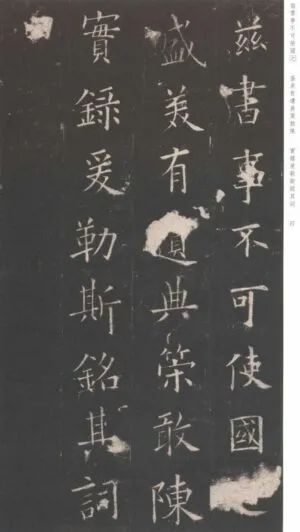 茲書事不可使國
盛美有遺典筞敢陳
實錄爰勒斯銘其詞